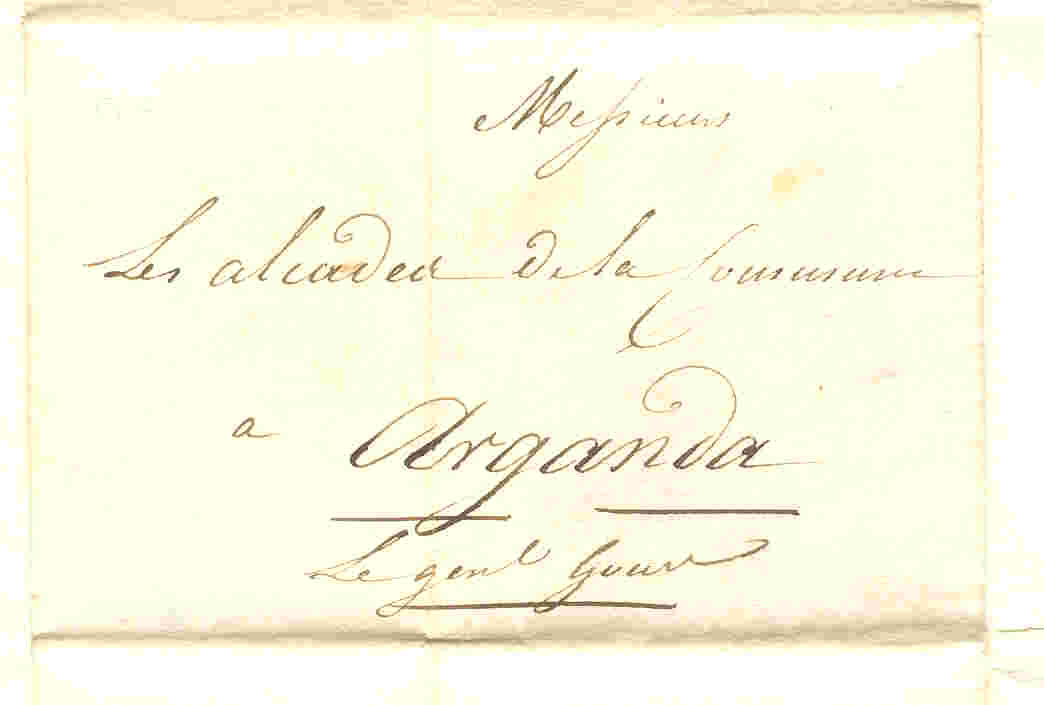 Messieurs
Les alcades de la Commune
a Arganda
Le genl Gouvr